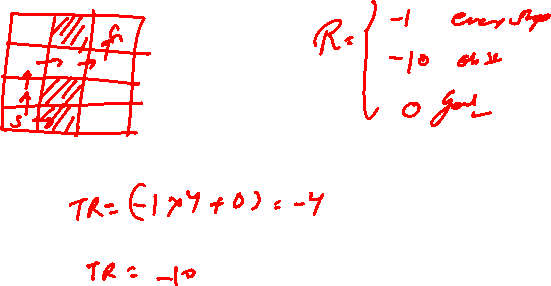 G
S
R = { -1 every step
-10 obst
0 Goal
TR = (-1 × 4 + 0) = -4
TR = -10